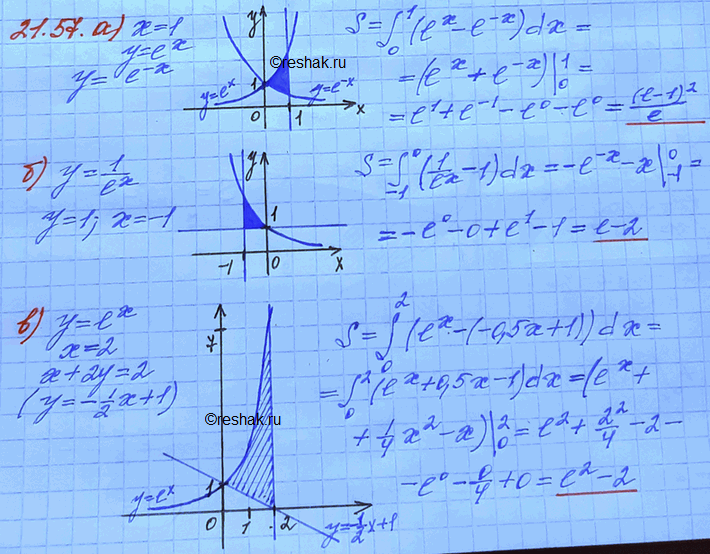 21.57. а) x=1
y=e^x
y= e^-x
y
©reshak.ru
1
y=e^x
y=e^-x
0 1 x
S=∫₀¹(e^x-e^-x)dx=
=(e^x+e^-x)|₀¹=
=e^1+e^-1-e^0-e^0=(e-1)²/e
б) y=1/e^x
y=1; x=-1
y
1
-1 0 x
S=∫₋₁⁰(1/e^x-1)dx=-e^-x-x|₋₁⁰=
=-e^0-0+e^1-1=e-2
в) y=e^x
x=2
x+2y=2
(y=-1/2x+1)
7
©reshak.ru
y=e^x
1
0 1 2
y=-1/2x+1
S=∫₀²(e^x-(-0,5x+1))dx=
=∫₀²(e^x+0,5x-1)dx=(e^x+
+1/4x²-x)|₀²=e²+2²/4-2-
-e^0-0/4+0=e²-2